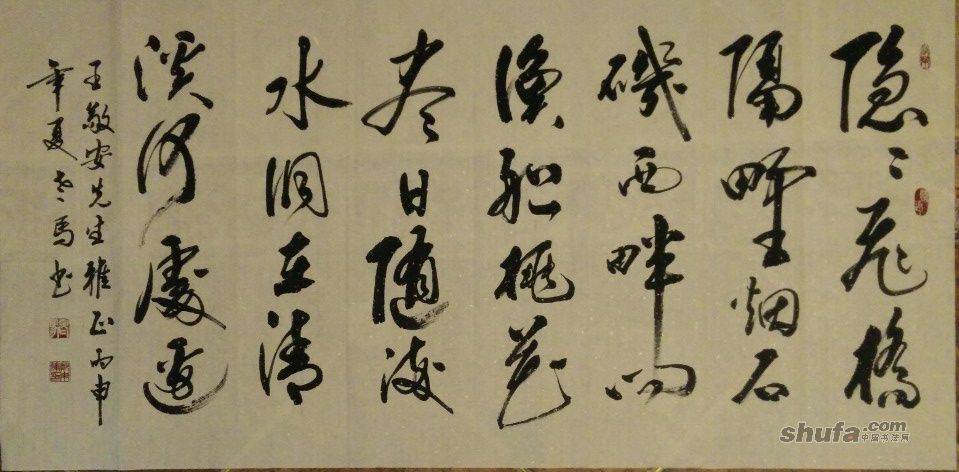 隐〻飛橋
隔野烟石
磯西畔问
漁船桃花
尽日随流
水洞在清
溪何處邊
王敬安先生雅正丙申
年夏老馬书
shufa.com
中国书法网